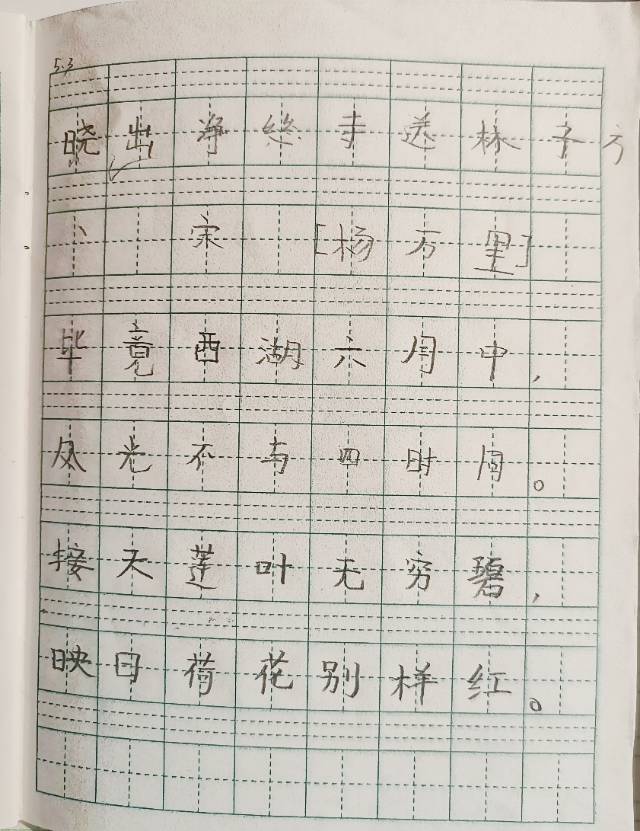 5.3
晓出净终寺送林子方
宋 [杨万里]
毕竟西湖六月中,
风光不与四时同。
接天莲叶无穷碧,
映日荷花别样红。